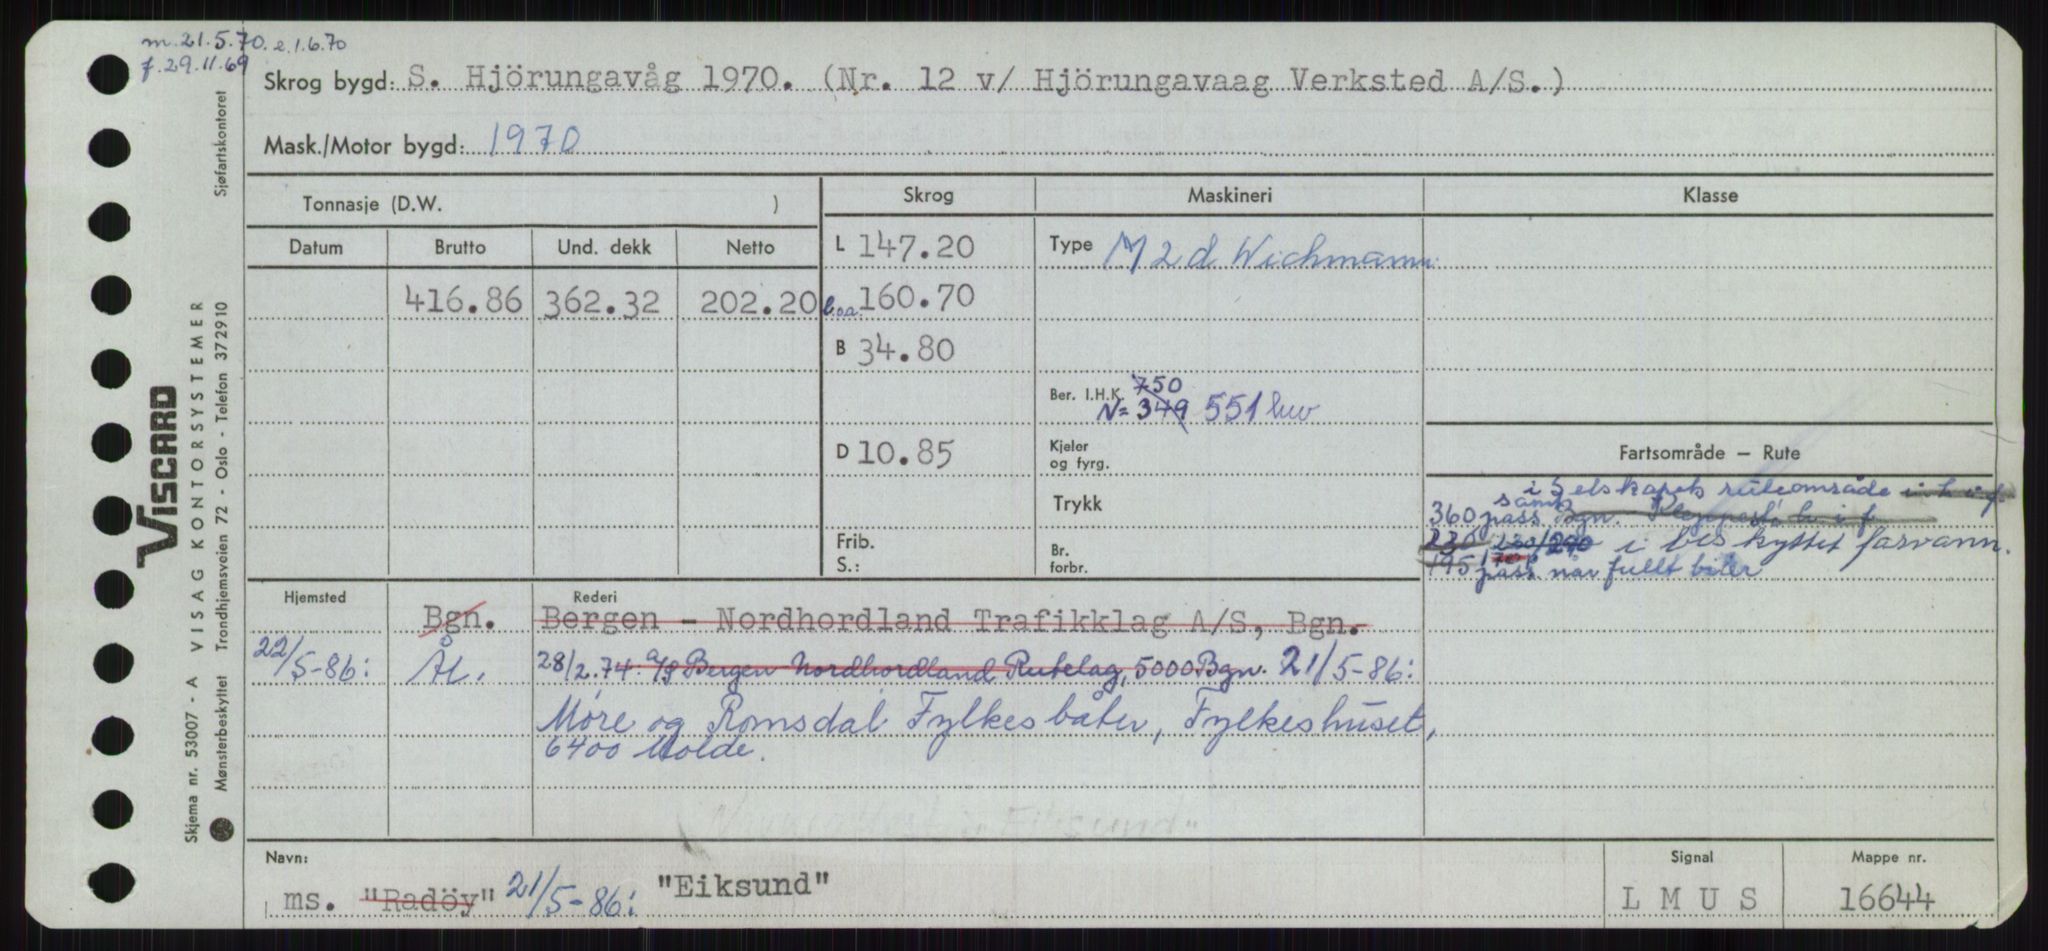 m. 21.5.70. e.1.6.70
f. 29.11.69
Skrog bygd: S. Hjörungavåg 1970. (Nr. 12 v/ Hjörungavaag Verksted A/S.)
Mask./Motor bygd: 1970
Tonnasje (D.W. )
Skrog
Maskineri
Klasse
Datum Brutto Und. dekk Netto
L 147.20
Type M 2 d Wichmann
416.86 362.32 202.20
l.o.a. 160.70
B 34.80
Ber. I.H.K. 750
N= 349 551 hw
D 10.85
Kjeler
og fyrg.
Fartsområde – Rute
Trykk
i Selskapets ruteområde
samt
360 pass Bgn.
Frib.
S.:
Br.
forbr.
230 230/290 i beskyttet farvann.
195 pass når fullt biler
Hjemsted
Rederi
Bgn. Bergen - Nordhordland Trafikklag A/S, Bgn.
22/5-86: Ål. 28/2.74. A/S Bergen Nordhordland Rutelag, 5000 Bgn. 21/5-86:
Møre og Romsdal Fylkesbåter, Fylkeshuset,
6400 Molde.
Eiksund"
Navn:
Signal
Mappe nr.
ms. "Radöy" 21/5-86: "Eiksund"
L M U S
16644
VISCARD
Skjema nr. 53007 - A VISAG KONTORSYSTEMER
Mønsterbeskyttet Trondhjemsveien 72 - Oslo - Telefon 372910 Sjøfartskontoret